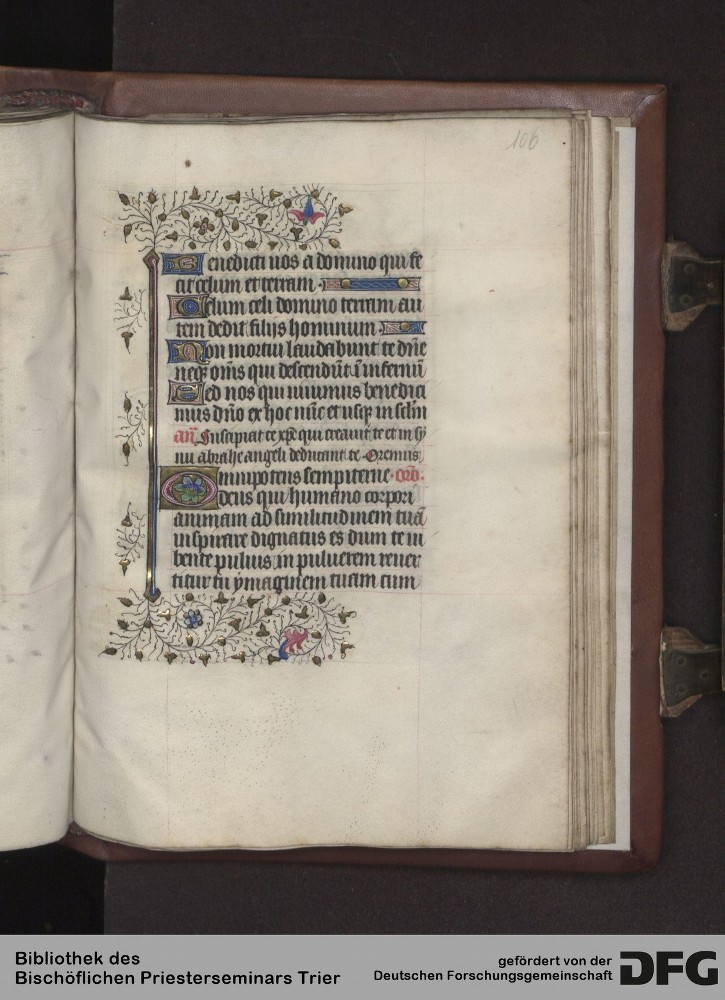 106
Benedicti uos a domino qui fe
cit celum et terram
Celum celi domino terram au
tem dedit filijs hominum
Non mortui laudabunt te dñe
neqꝫ oms̃ qui descendũt ĩ infernũ
Sed nos qui uiuimus benedici
mus dño ex hoc nũc et usqꝫ in sclm̃
añ. Suscipiat te xp̃c qui creauit te et in sy
nu abrahe angeli deducant te Oremus
Omnipotens sempiterne orõ.
deus qui humano corpori
animam ad similitudinem tuã
inspirare dignatus es dum te iu
bente puluis in puluerem reuer
titur tu ymaginem tuam cum
Bibliothek des
Bischöflichen Priesterseminars Trier
gefördert von der
Deutschen Forschungsgemeinschaft
DFG